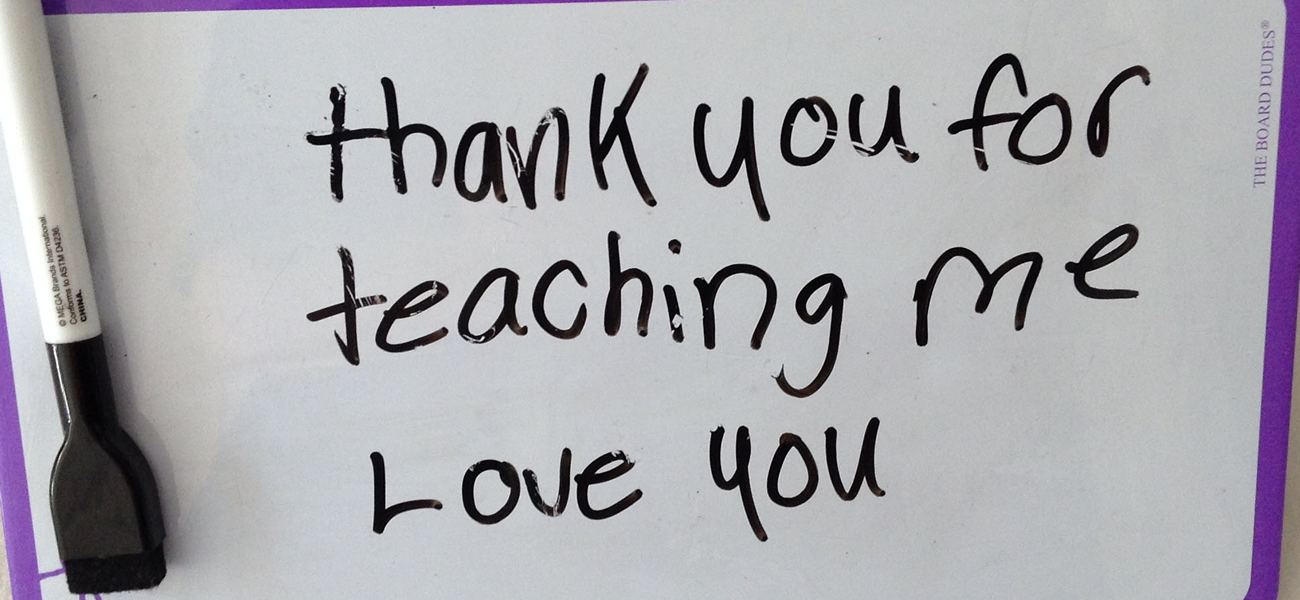 thank you for
teaching me
Love you
THE BOARD DUDES®
© MEGA Brands International.
Conforms to ASTM D4236.
CHINA.